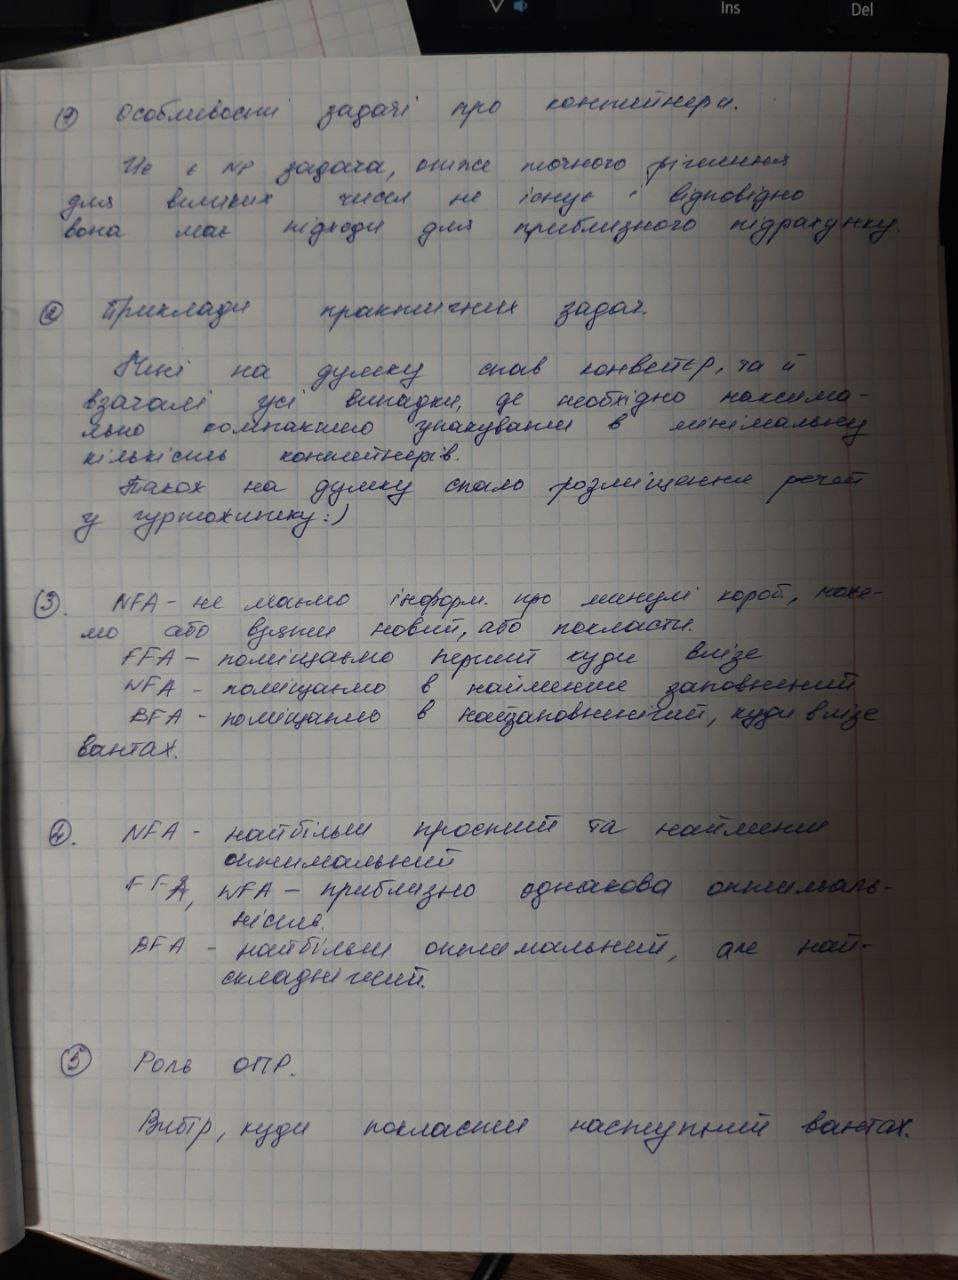 Ins
Del
① Особливости задачі про контейнери.
Це є NP задача, отже точного рішення
для великих чисел не існує і відповідно
вона має підходи для приблизного підрахунку.
② Приклади практичних задач.
Мені на думку спав конвейєр, та й
взагалі усі випадки, де необхідно максима-
льно компактно упакувати в мінімальну
кількість контейнерів.
Також на думку спало розміщення речей
у гуртожитку :)
③. NFA - не маємо інформ. про минулі короб, може-
мо або взяти новий, або покласти.
FFA - поміщаємо перший куди влізе
WFA - поміщаємо в найменше заповнений
BFA - поміщаємо в найзаповненіший, куди влізе
вантаж.
④. NFA - найбільш простий та найменш
оптимальний
FFA, WFA - приблизно однакова оптималь-
ність.
BFA - найбільш оптимальний, але най-
складніший.
⑤ Роль ОПР.
Вибір, куди покласти наступний вантаж.